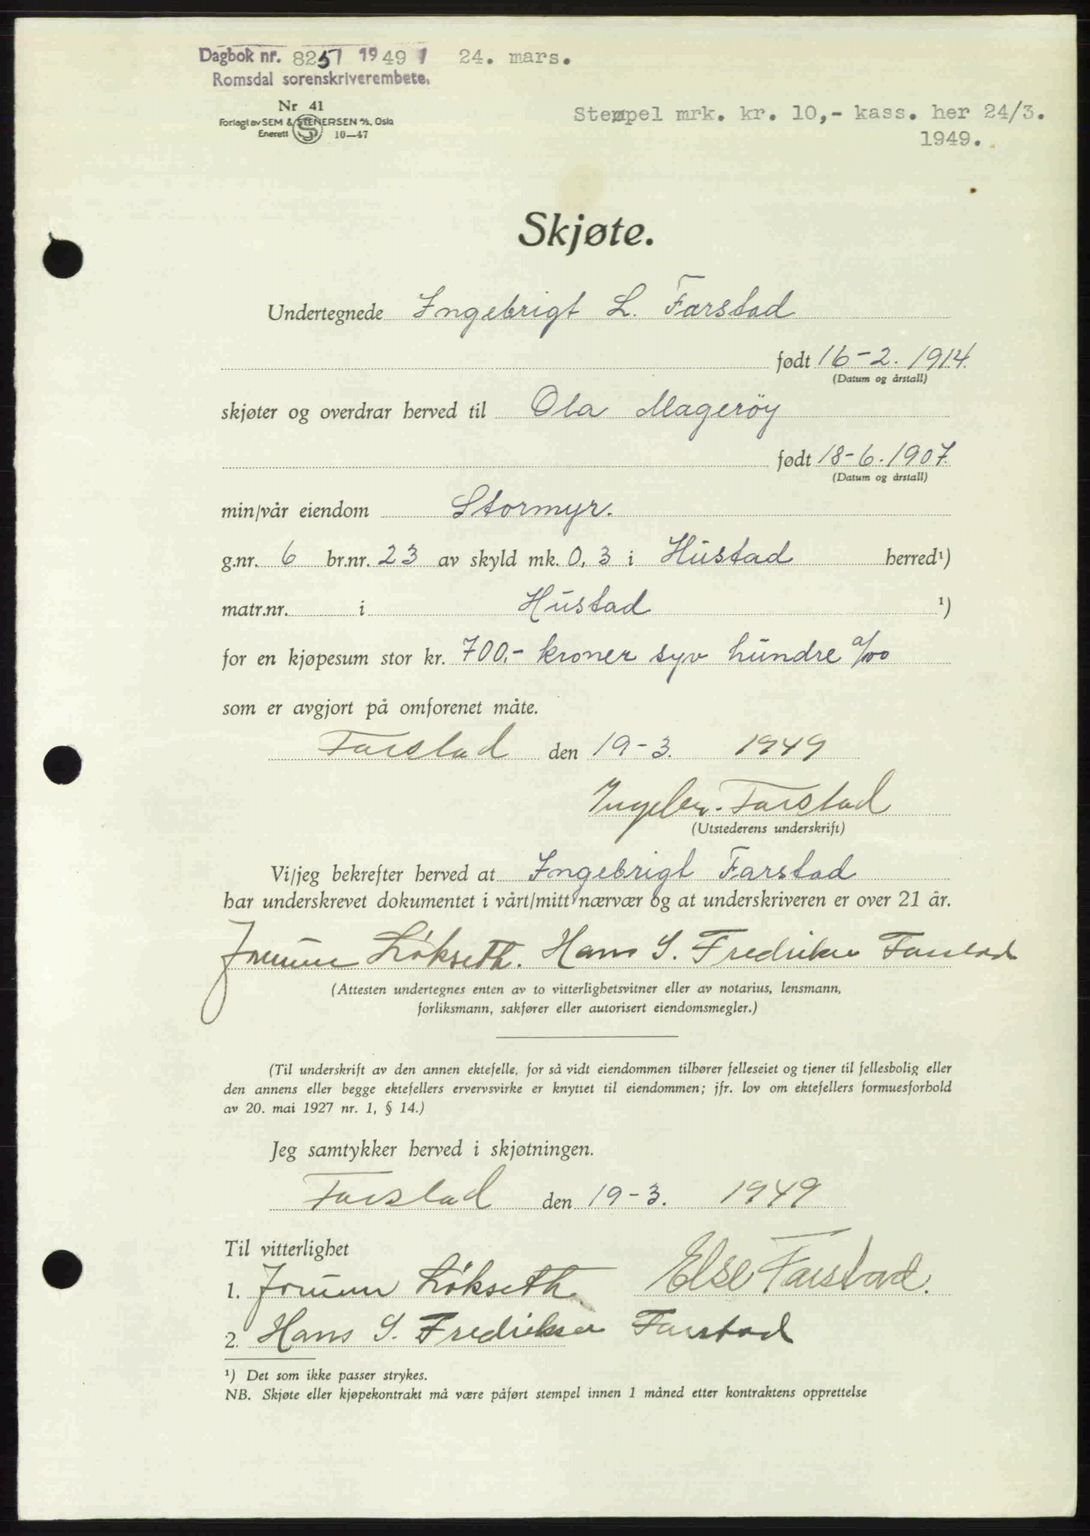 Dagbok nr. 8251 1949 24. mars.
Romsdal sorenskriverembete.
Nr 41
Forlagt av SEM & STENERSEN A/S, Oslo
Enerett S 10—47
Stempel mrk. kr. 10,- kass. her 24/3.
1949.
Skjøte.
Undertegnede Ingebrigt L. Farstad
født 16-2. 1914.
(Datum og årstall)
skjøter og overdrar herved til Ola Magerøy
født 18-6. 1907.
(Datum og årstall)
min/vår eiendom Stormyr.
g.nr. 6 br.nr. 23 av skyld mk. 0,3 i Hustad herred¹)
matr.nr. i Hustad ¹)
for en kjøpesum stor kr. 700,- kroner syv hundre 0/00
som er avgjort på omforenet måte.
Farstad den 19-3. 1949
Ingebr. Farstad
(Utstederens underskrift)
Vi/jeg bekrefter herved at Ingebrigt Farstad
har underskrevet dokumentet i vårt/mitt nærvær og at underskriveren er over 21 år.
Løkseth. Hans S. Fredriksen Farstad
(Attesten undertegnes enten av to vitterlighetsvitner eller av notarius, lensmann,
forliksmann, sakfører eller autorisert eiendomsmegler.)
(Til underskrift av den annen ektefelle, for så vidt eiendommen tilhører felleseiet og tjener til fellesbolig eller
den annens eller begge ektefellers ervervsvirke er knyttet til eiendommen; jfr. lov om ektefellers formuesforhold
av 20. mai 1927 nr. 1, § 14.)
Jeg samtykker herved i skjøtningen.
Farstad den 19-3. 1949
Til vitterlighet
1. Løkseth Else Farstad.
2. Hans S. Fredriksen Farstad
¹) Det som ikke passer strykes.
NB. Skjøte eller kjøpekontrakt må være påført stempel innen 1 måned etter kontraktens opprettelse